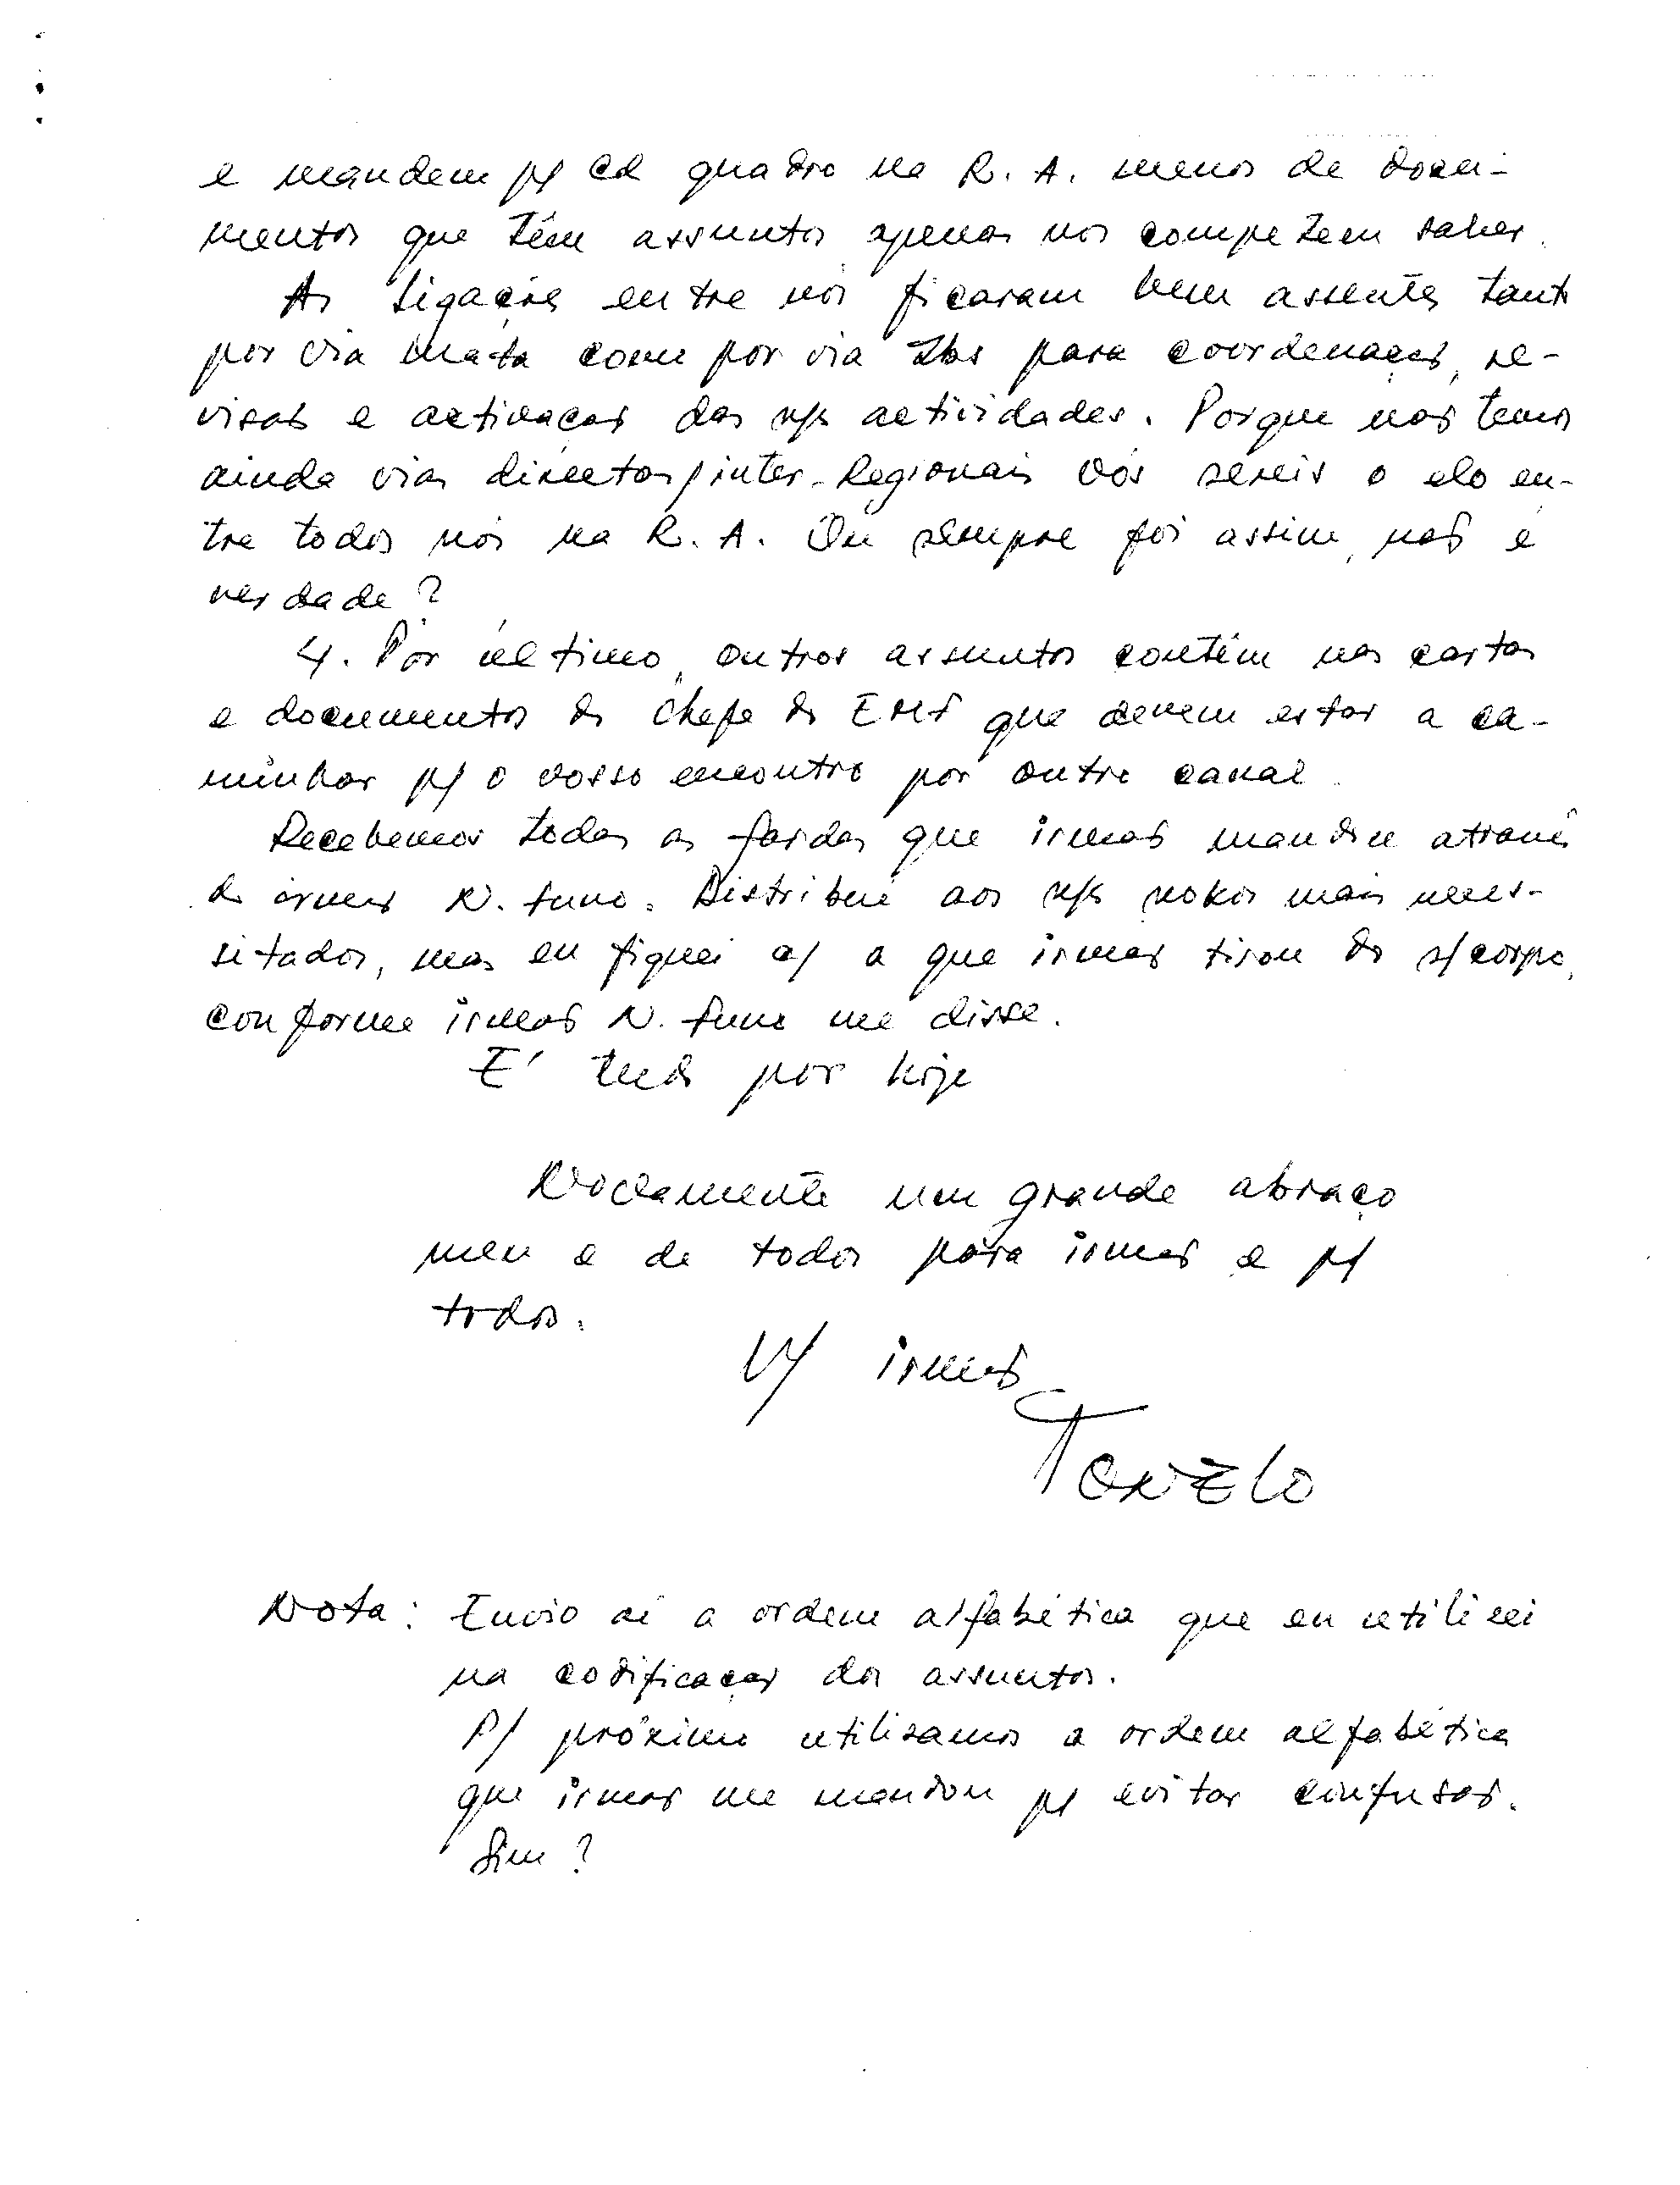 e mandem p/ cd quadro na R. A. menos de docu-
mentos que têm assuntos apenas nos competem saber.
As ligações entre nós ficaram bem assente tanto
por via mata como por via Zbs para coordenação, re-
visão e activação das n/s actividades. Porque não temos
ainda vias directas inter-Regionais vós sereis o elo en-
tre todos nós na R. A. Ou sempre foi assim, não é
verdade?
4. Por último, outros assuntos contêm nas cartas
e documentos do Chefe do EMF que devem estar a ca-
minhar p/ o vosso encontro por outro canal.
Recebemos todas as fardas que irmão mandou através
do irmão N. Tuno. Distribui aos n/s mais neces-
sitados, mas eu fiquei c/ a que irmão tirou do s/corpo,
conforme irmão N. Tuno me disse.
E' tudo por hoje
um grande abraço
meu e de todos para irmão e p/
todos.
V/ irmão
TONZLO
Nota: Envio aí a ordem alfabética que eu utilizei
na codificação dos assuntos.
P/ próximo utilisamos a ordem alfabética
que irmão me mandou p/ evitar confusão.
Sim?